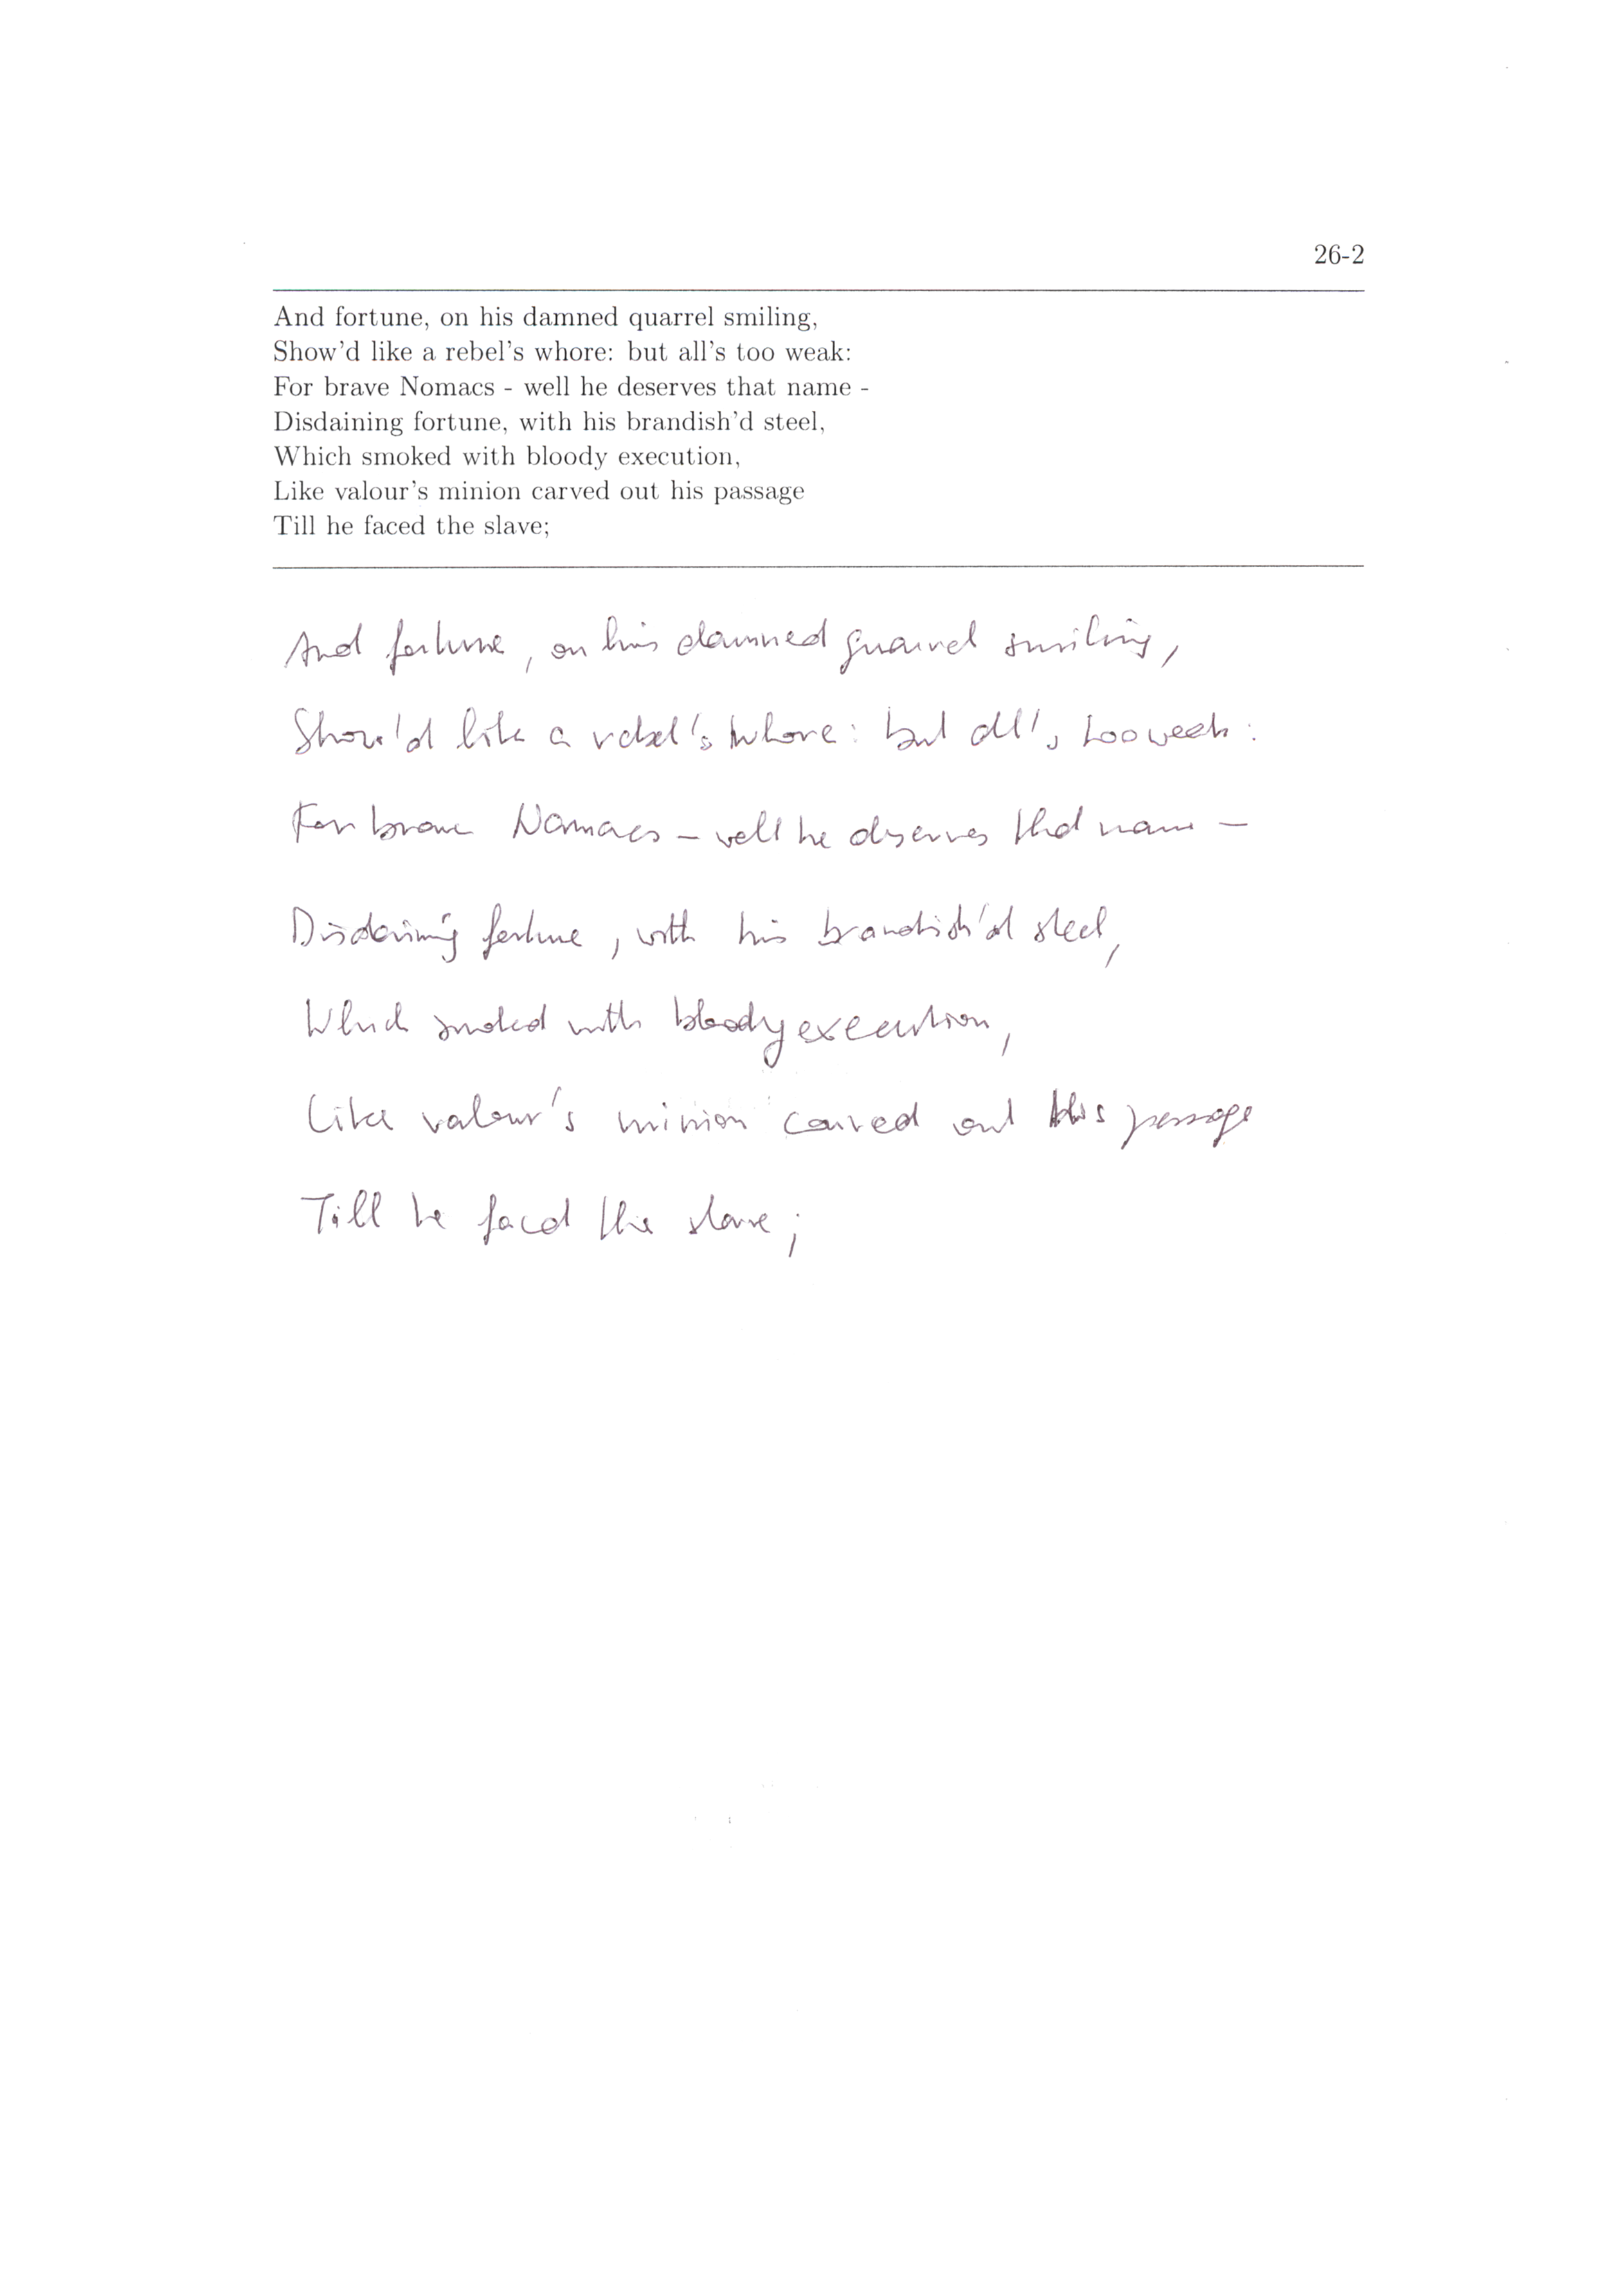 26-2
And fortune, on his damned quarrel smiling,
Show'd like a rebel's whore: but all's too weak:
For brave Nomacs - well he deserves that name -
Disdaining fortune, with his brandish'd steel,
Which smoked with bloody execution,
Like valour's minion carved out his passage
Till he faced the slave;
And fortune, on his damned quarrel smiling,
Show'd like a rebel's whore: but all's too weak:
For brave Nomacs - well he deserves that name -
Disdaining fortune, with his brandish'd steel,
Which smoked with bloody execution,
Like valour's minion carved out his passage
Till he faced the slave;